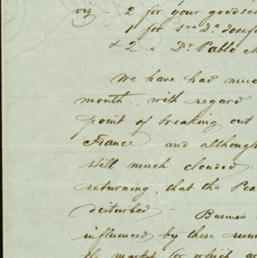 viz - 2 for your goodsel
1 for Sr. Dn. Josef
& 2 " Dn. Pablo
We have had much
month, with regard
point of breaking out
France and although
still much clouded
returning, that the Pea
disturbed - Business
influenced by these rum
the market for which ar